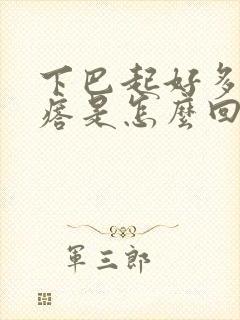 下巴起好多
痞是怎麼回
軍三郎